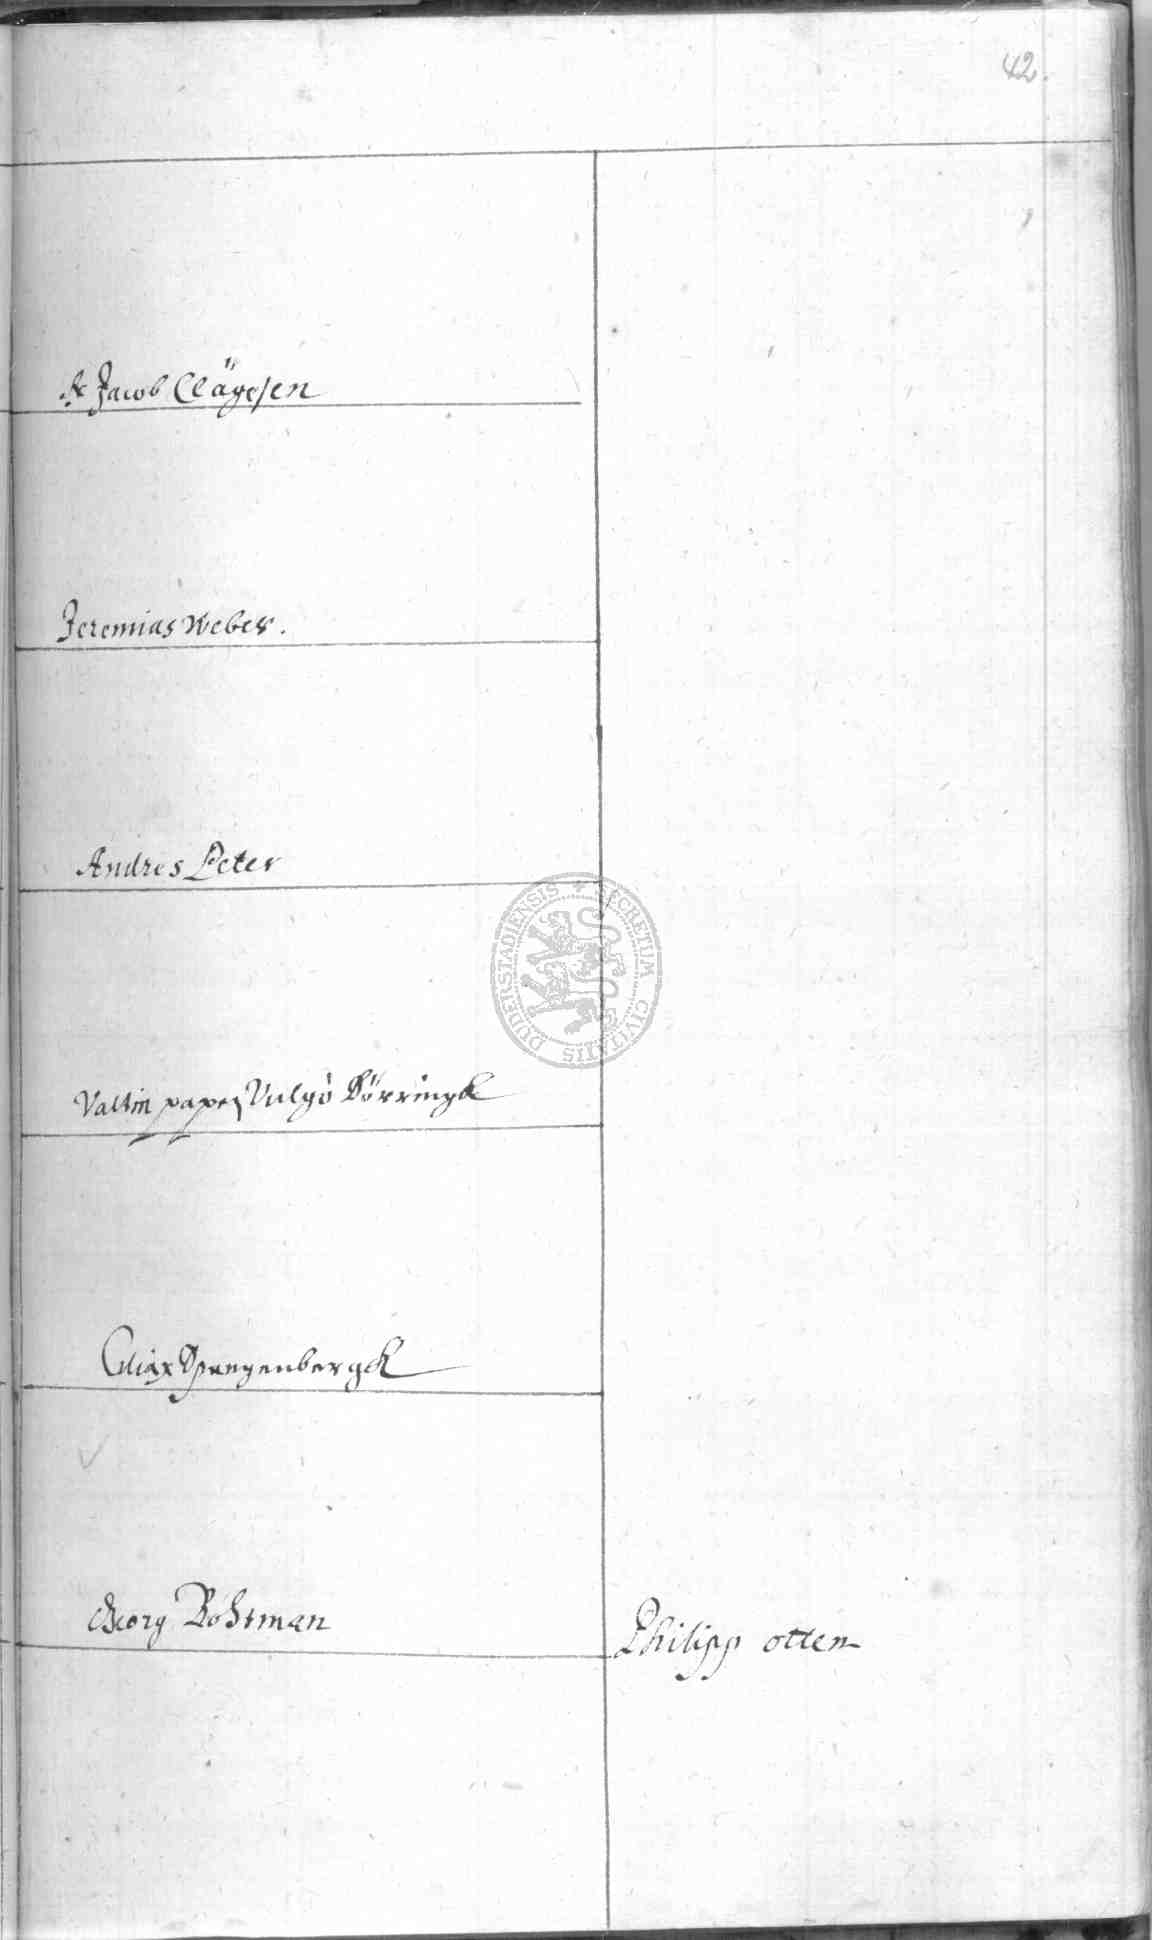 42.
Jacob Clägesen
Jeremias Weber.
Andres Peter
DUDERSTADIENSIS * SECRETUM CIVITATIS
Valtin pape, Vulgò Dörringk
Spangenbergk
Georg Rohtman
Philipp otten